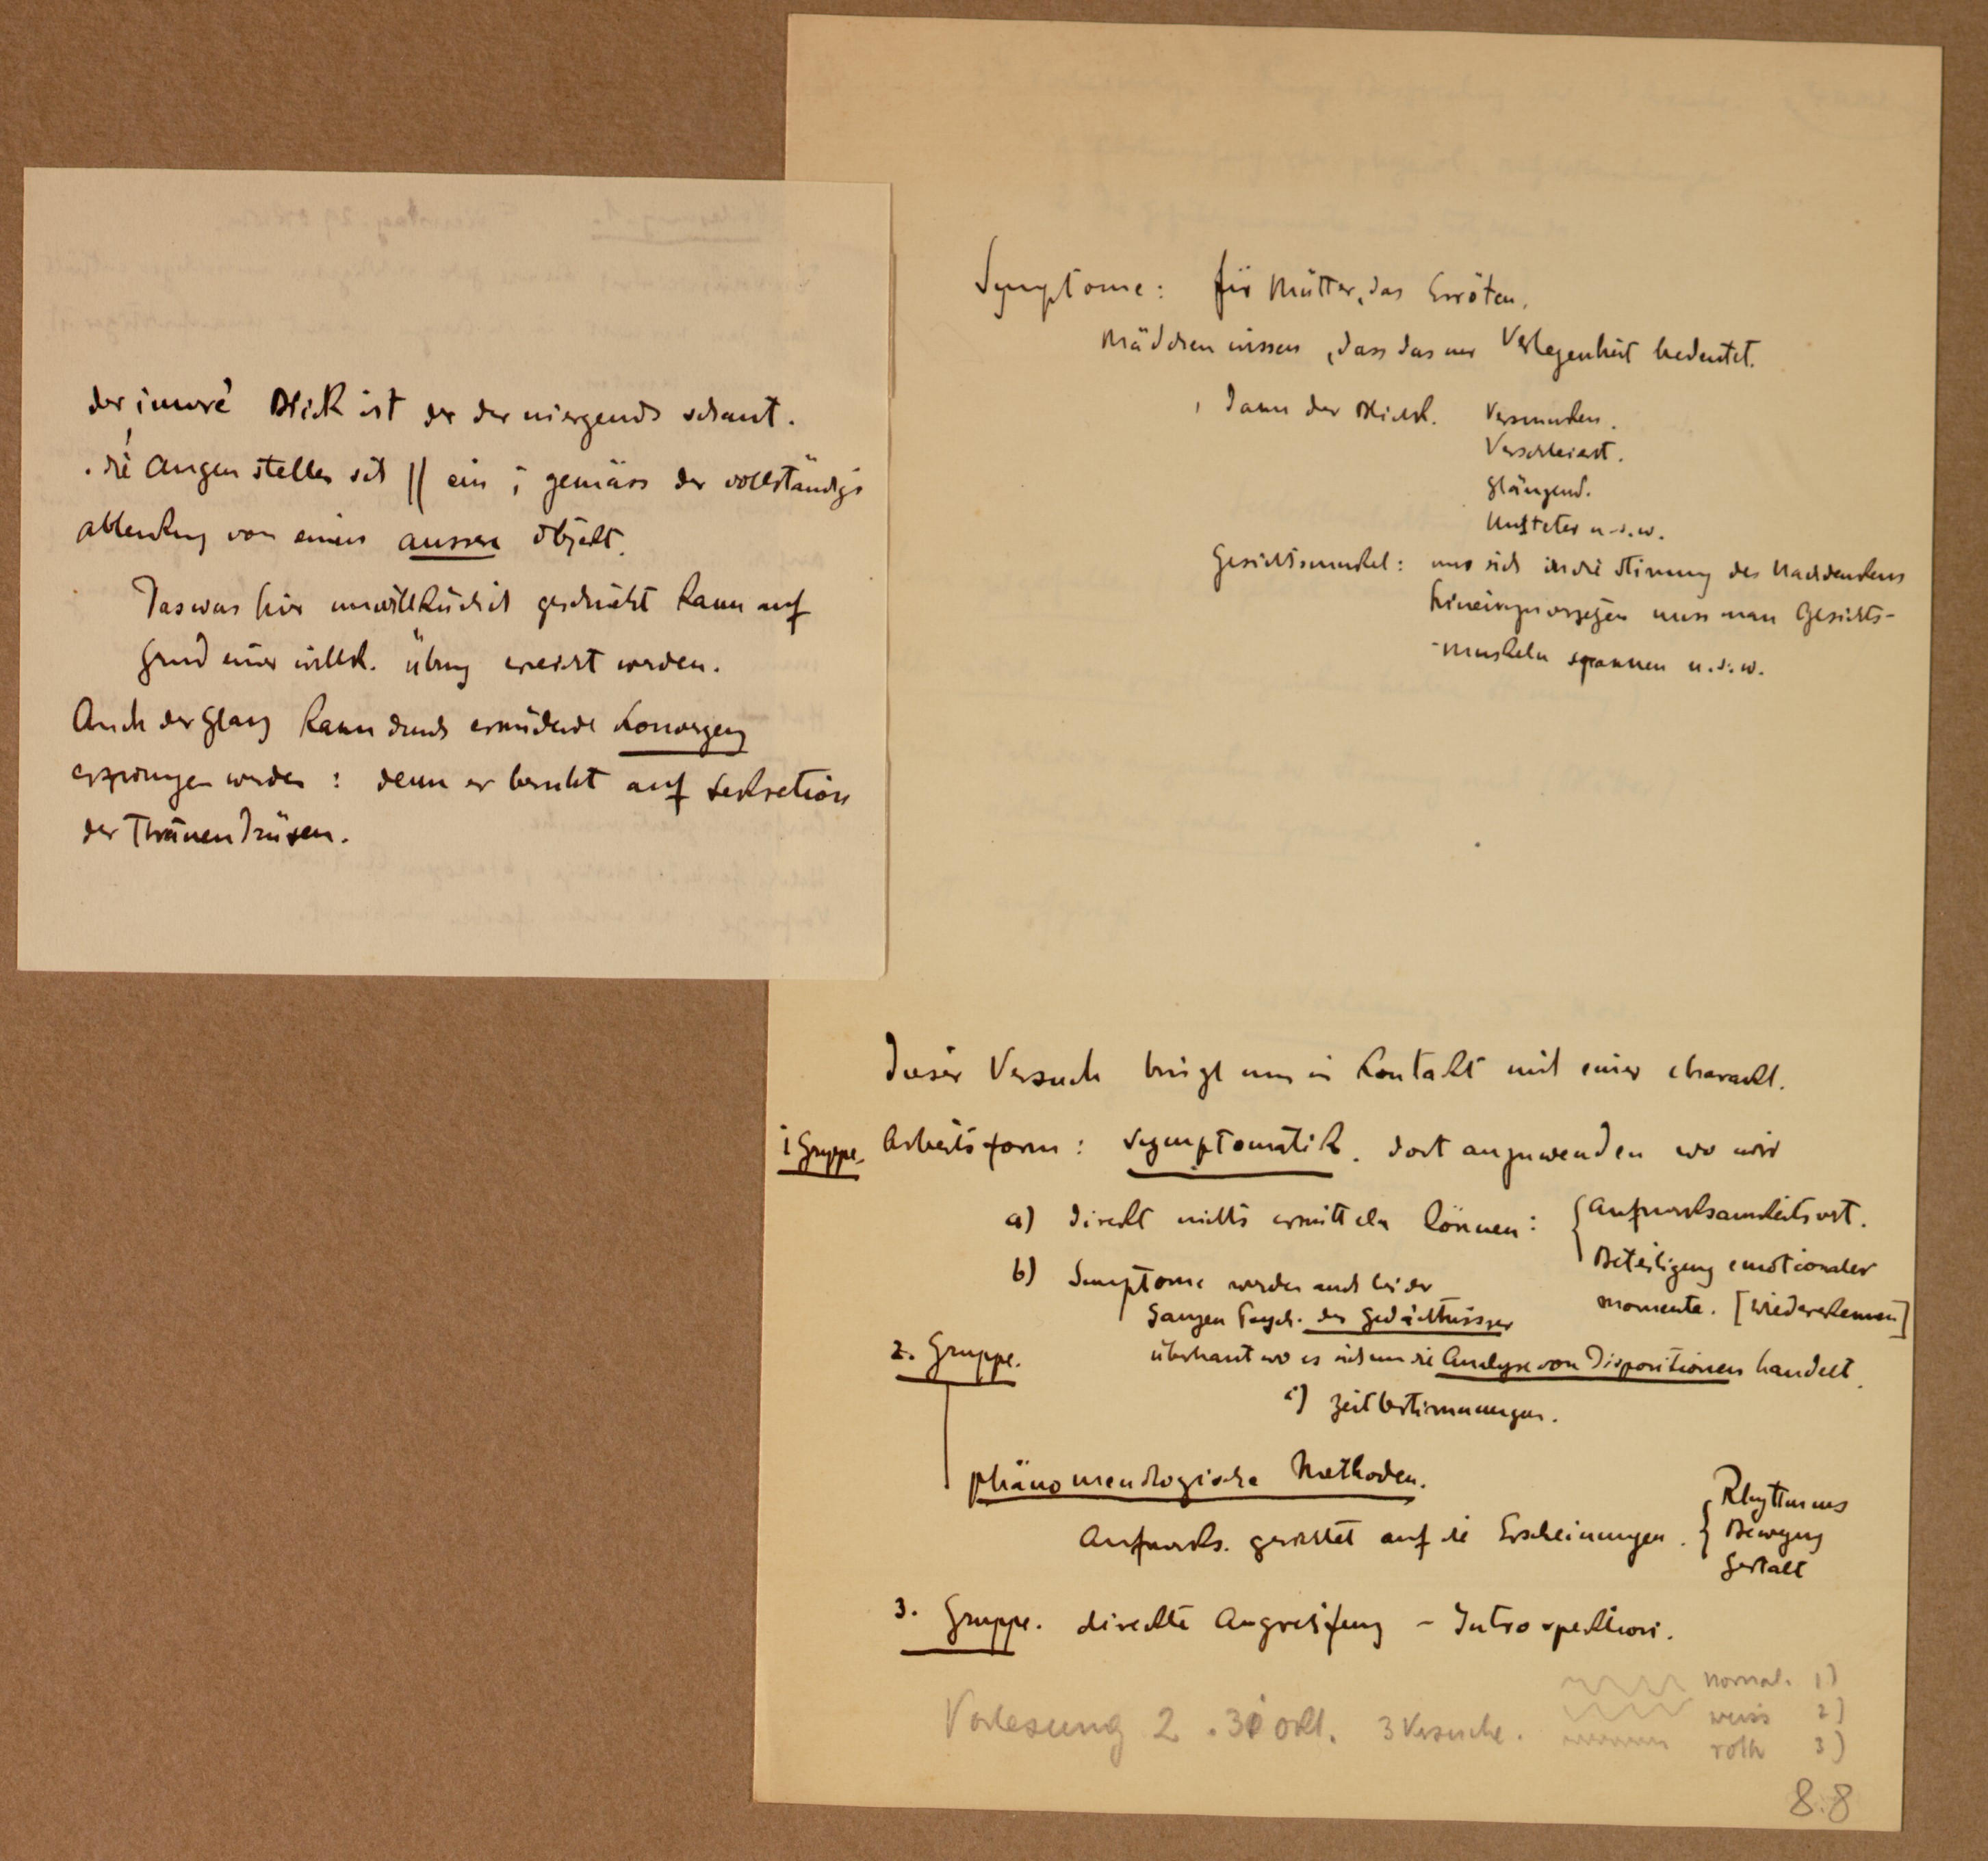 der innere Blick ist der der niergends schaut.
. die Augen stellen sich || ein ; gemäss der vollständige
Ablenkung von einem äussere Objekt.
Das was hier unwillkürlich geschieht kann auf
Grund einer willk. Übung erreicht werden.
Auch der Glanz kann durch ermüdende Konvergenz
erzwungen werden : denn er beruht auf Sekretion
der Thränendrüsen.
Symptome : für Mütter, das Erröten.
Mädchen wissen, dass das nur Verlegenheit bedeutet.
, dann der Blick. Versunken.
Verschleiert.
Glänzend.
Unsteter u.s.w.
Gesichtsmuskel : um sich in die Stimmung des Nachdenkens
hineinzuversetzen muss man Gesichts-
-muskeln spannen u.s.w.
Dieser Versuch bringt uns in Kontakt mit einer charackt.
1 Gruppe. Arbeitsform : Symptomatik. dort anzuwenden wo wir
a) direkt nichts ermitteln können : { Aufmerksamkeitsart.
Beteiligung emotionaler
momente. [Wiederkennen]
b) Symptome werden auch bei der
ganzen Psych. des Gedächtnisses
2. Gruppe. überhaut wo es sich um die Analyse von Dispositionen handelt.
c) Zeitbestimmungen.
phänomenologische Methoden.
Aufmerks. gerichtet auf die Erscheinungen. { Rhythmus
Bewegung
Gestalt
3. Gruppe. direkte Angreifung – Introspektion.
Vorlesung 2. 30 Okt. 3 Versuche.
normal. 1)
weiss 2)
roth 3)
8.8